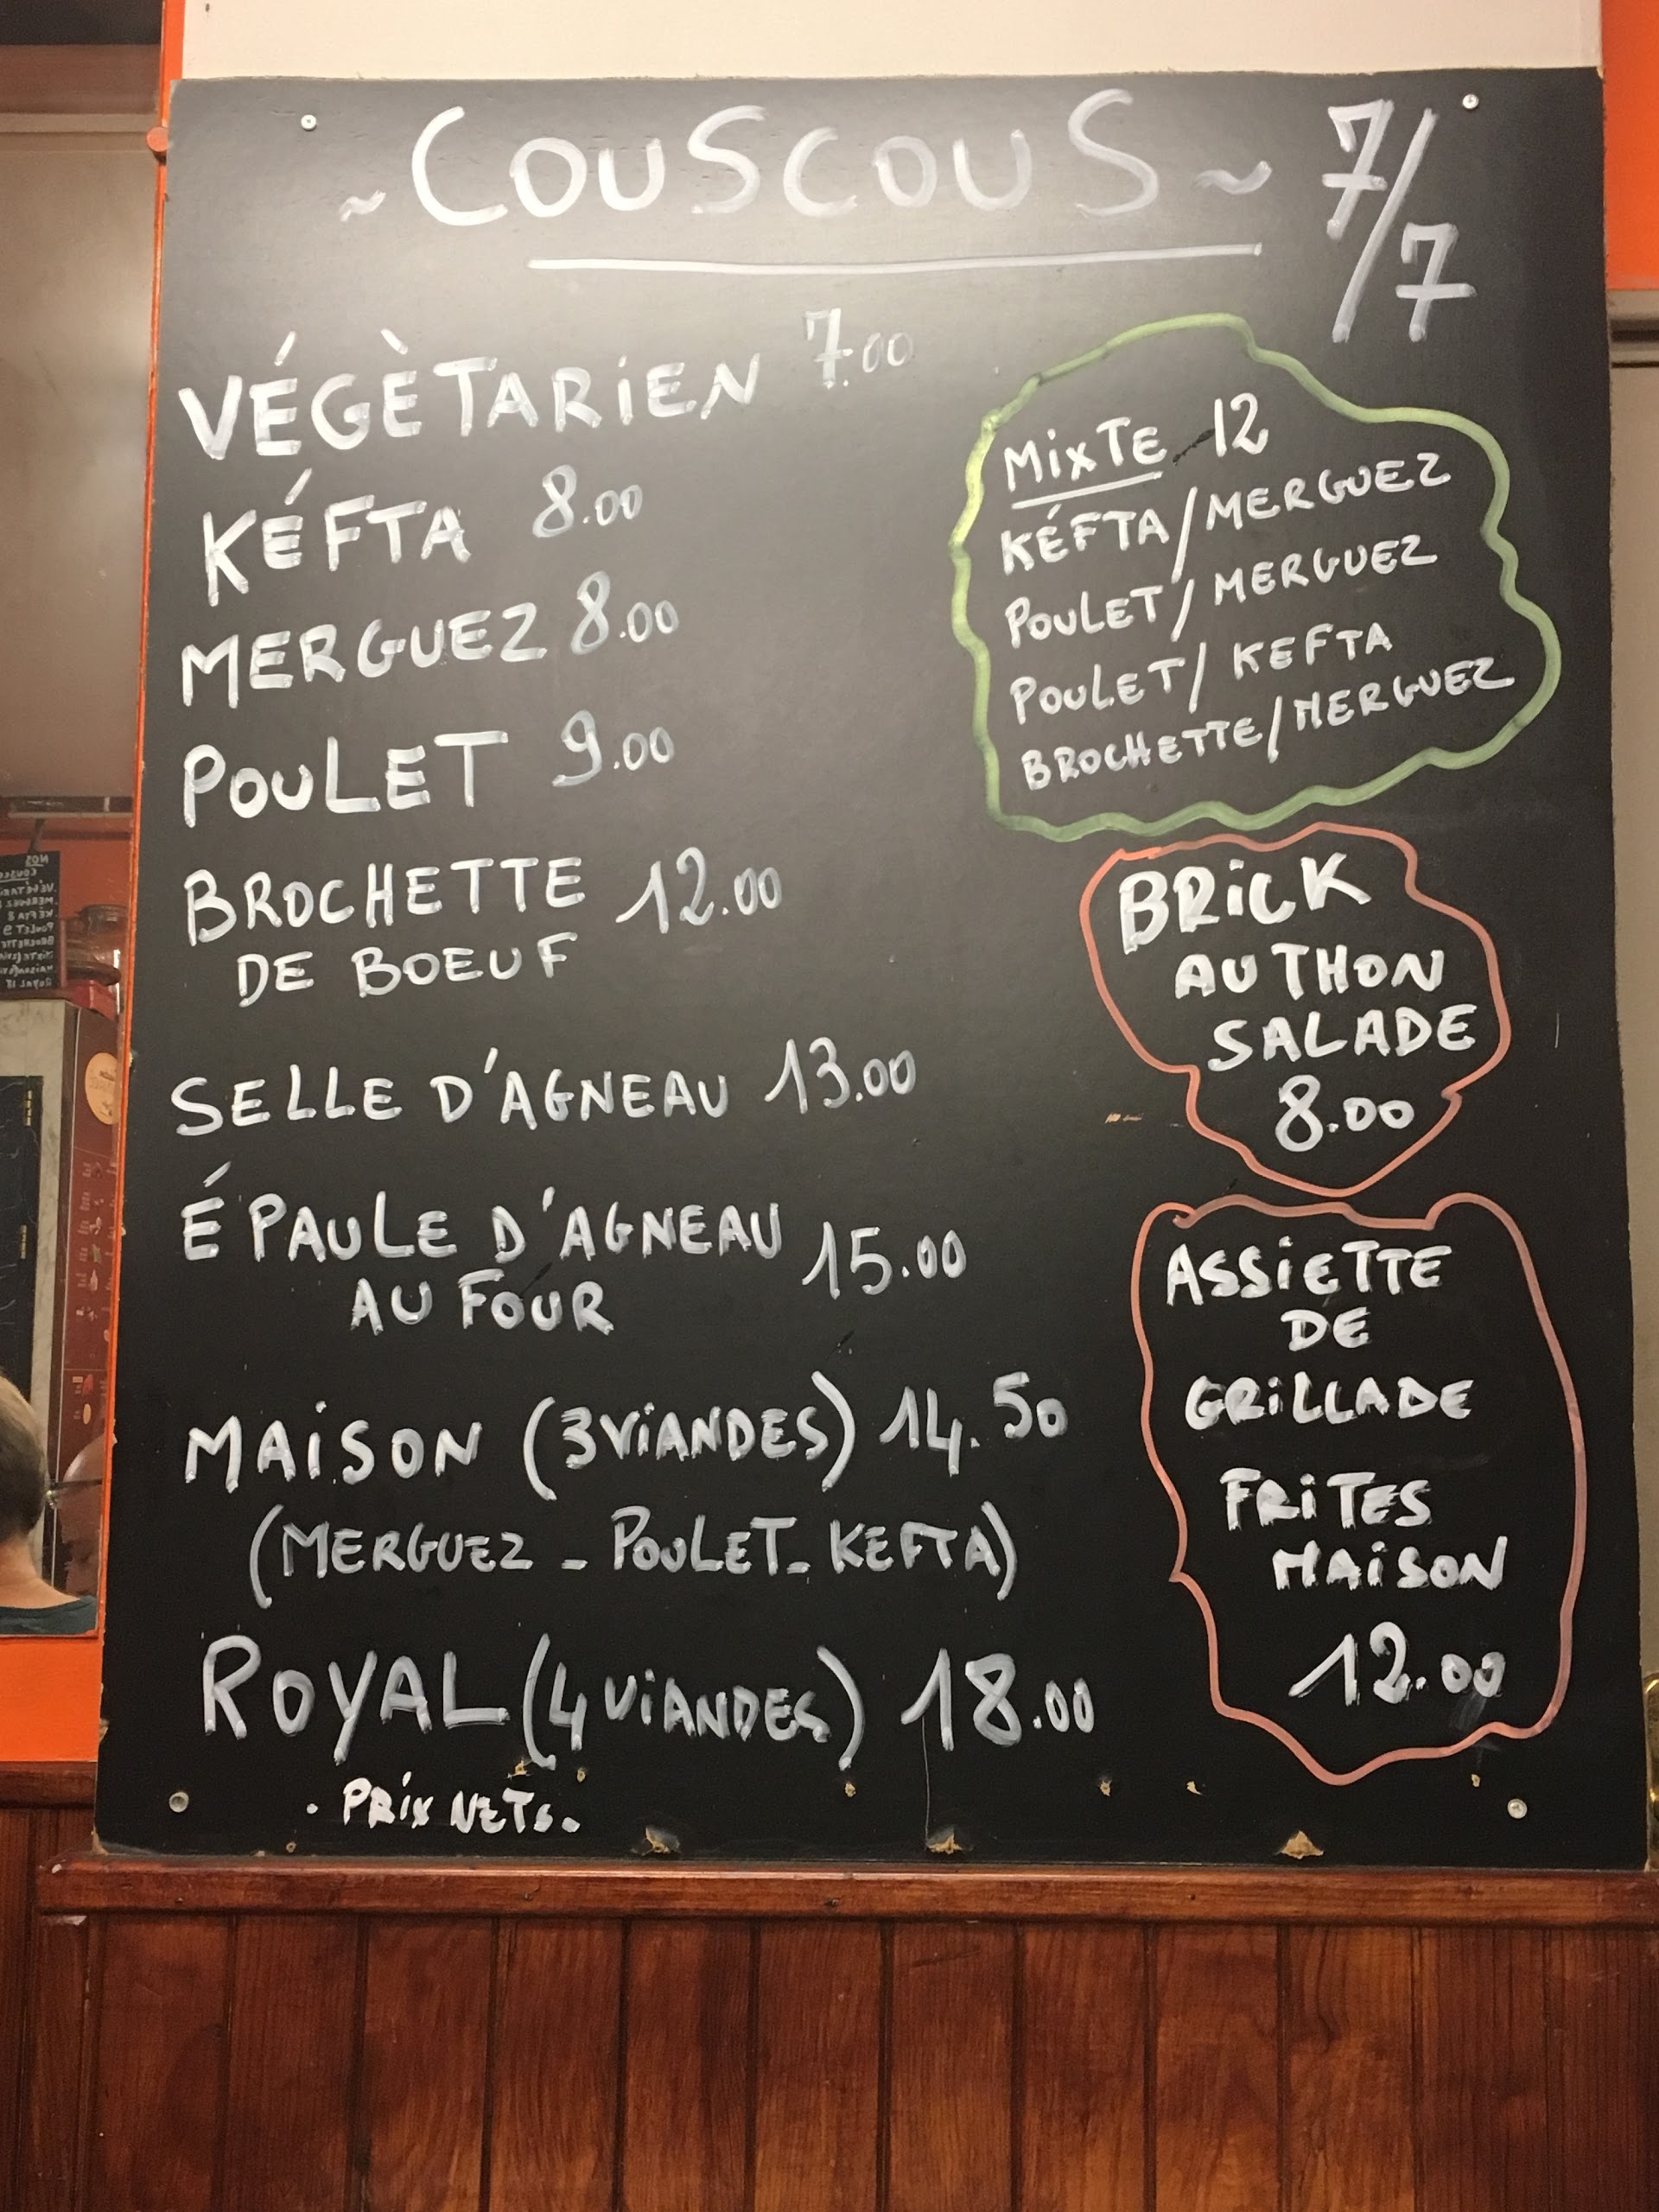 ~ COUSCOUS ~ 7/7
VÉGÈTARiEN 7.00
KÉFTA 8.00
MERGUEZ 8.00
POULET 9.00
BROCHETTE 12.00
DE BOEUF
SELLE D'AGNEAU 13.00
ÉPAULE D'AGNEAU 15.00
AU FOUR
MAiSON (3 ViANDES) 14.50
(MERGUEZ - POULET - KEFTA)
ROYAL (4 ViANDES) 18.00
. PRiX NETS.
MiXTE 12
KÉFTA/MERGUEZ
POULET/MERGUEZ
POULET/KEFTA
BROCHETTE/MERGUEZ
BRiCK
AU THON
SALADE
8.00
ASSiETTE
DE
GRiLLADE
FRiTES
MAiSON
12.00